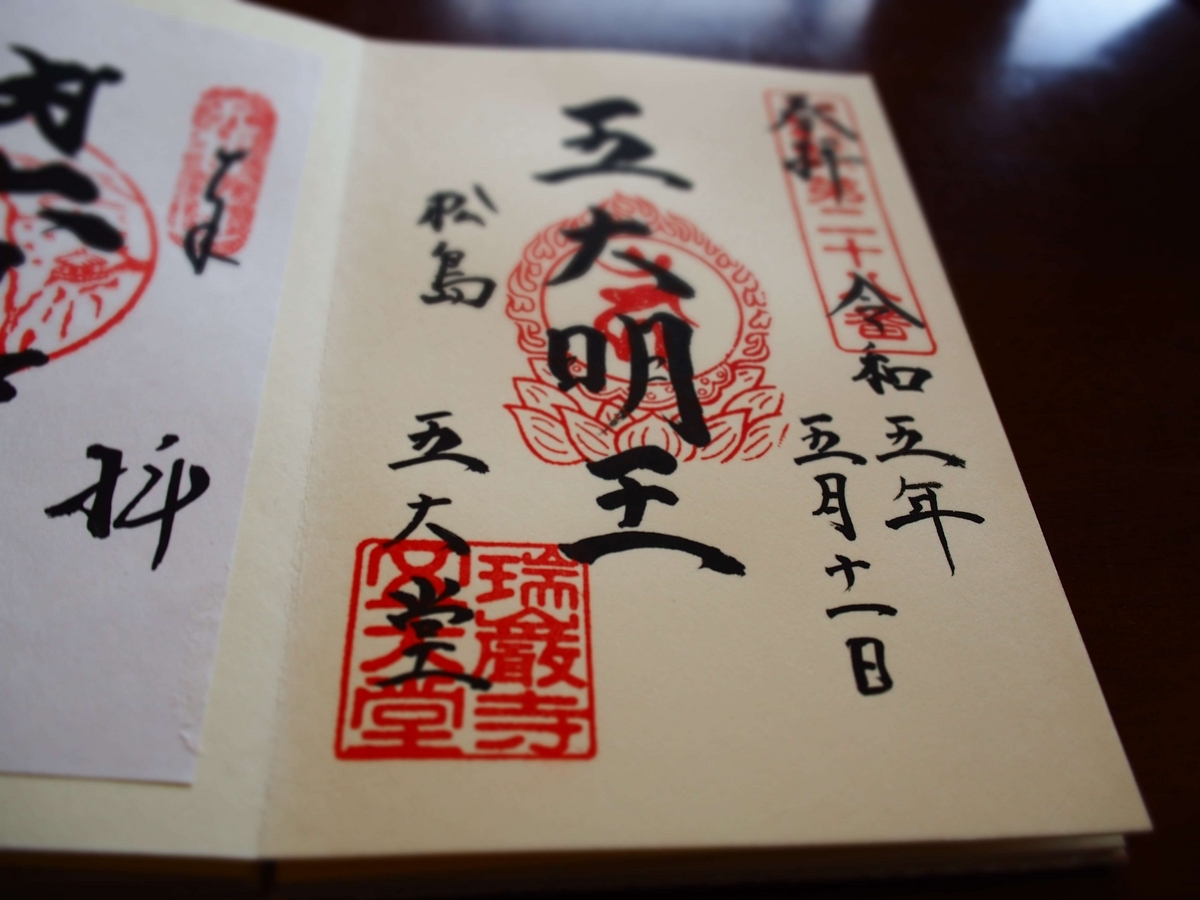 奉拝
第二十八番
令和五年
五月十一日
五大明王
松島
五大堂
瑞巌寺
五大堂
拝